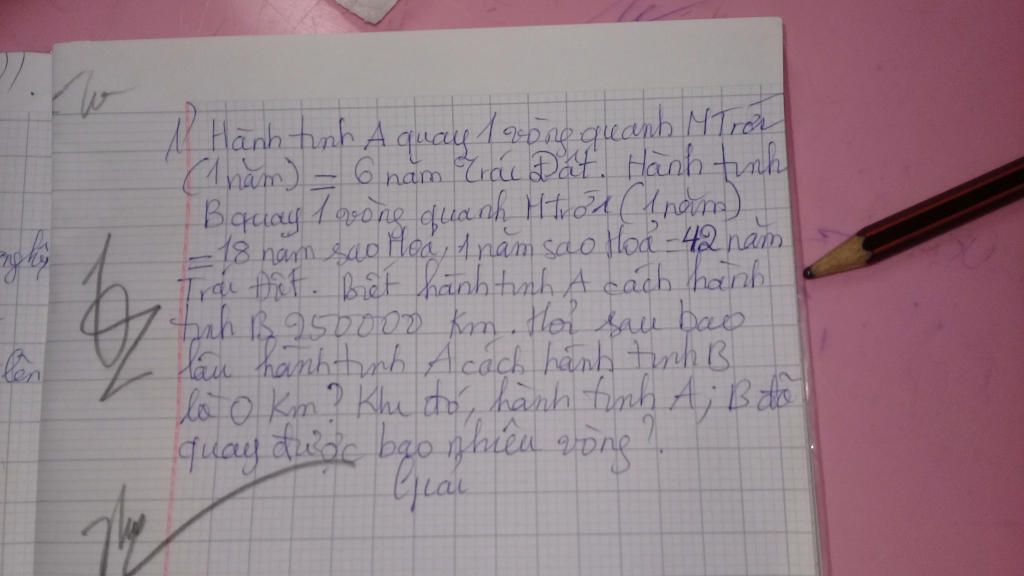 1) Hành tinh A quay 1 vòng quanh MTrời
(1 năm) = 6 năm Trái Đất. Hành tinh
B quay 1 vòng quanh MTrời (1 năm)
= 18 năm sao Hoả, 1 năm sao Hoả = 42 năm
Trái Đất. Biết hành tinh A cách hành
tinh B 950000 Km. Hỏi sau bao
lâu hành tinh A cách hành tinh B
là 0 Km? Khi đó, hành tinh A; B đã
quay được bao nhiêu vòng?
Giải
lên